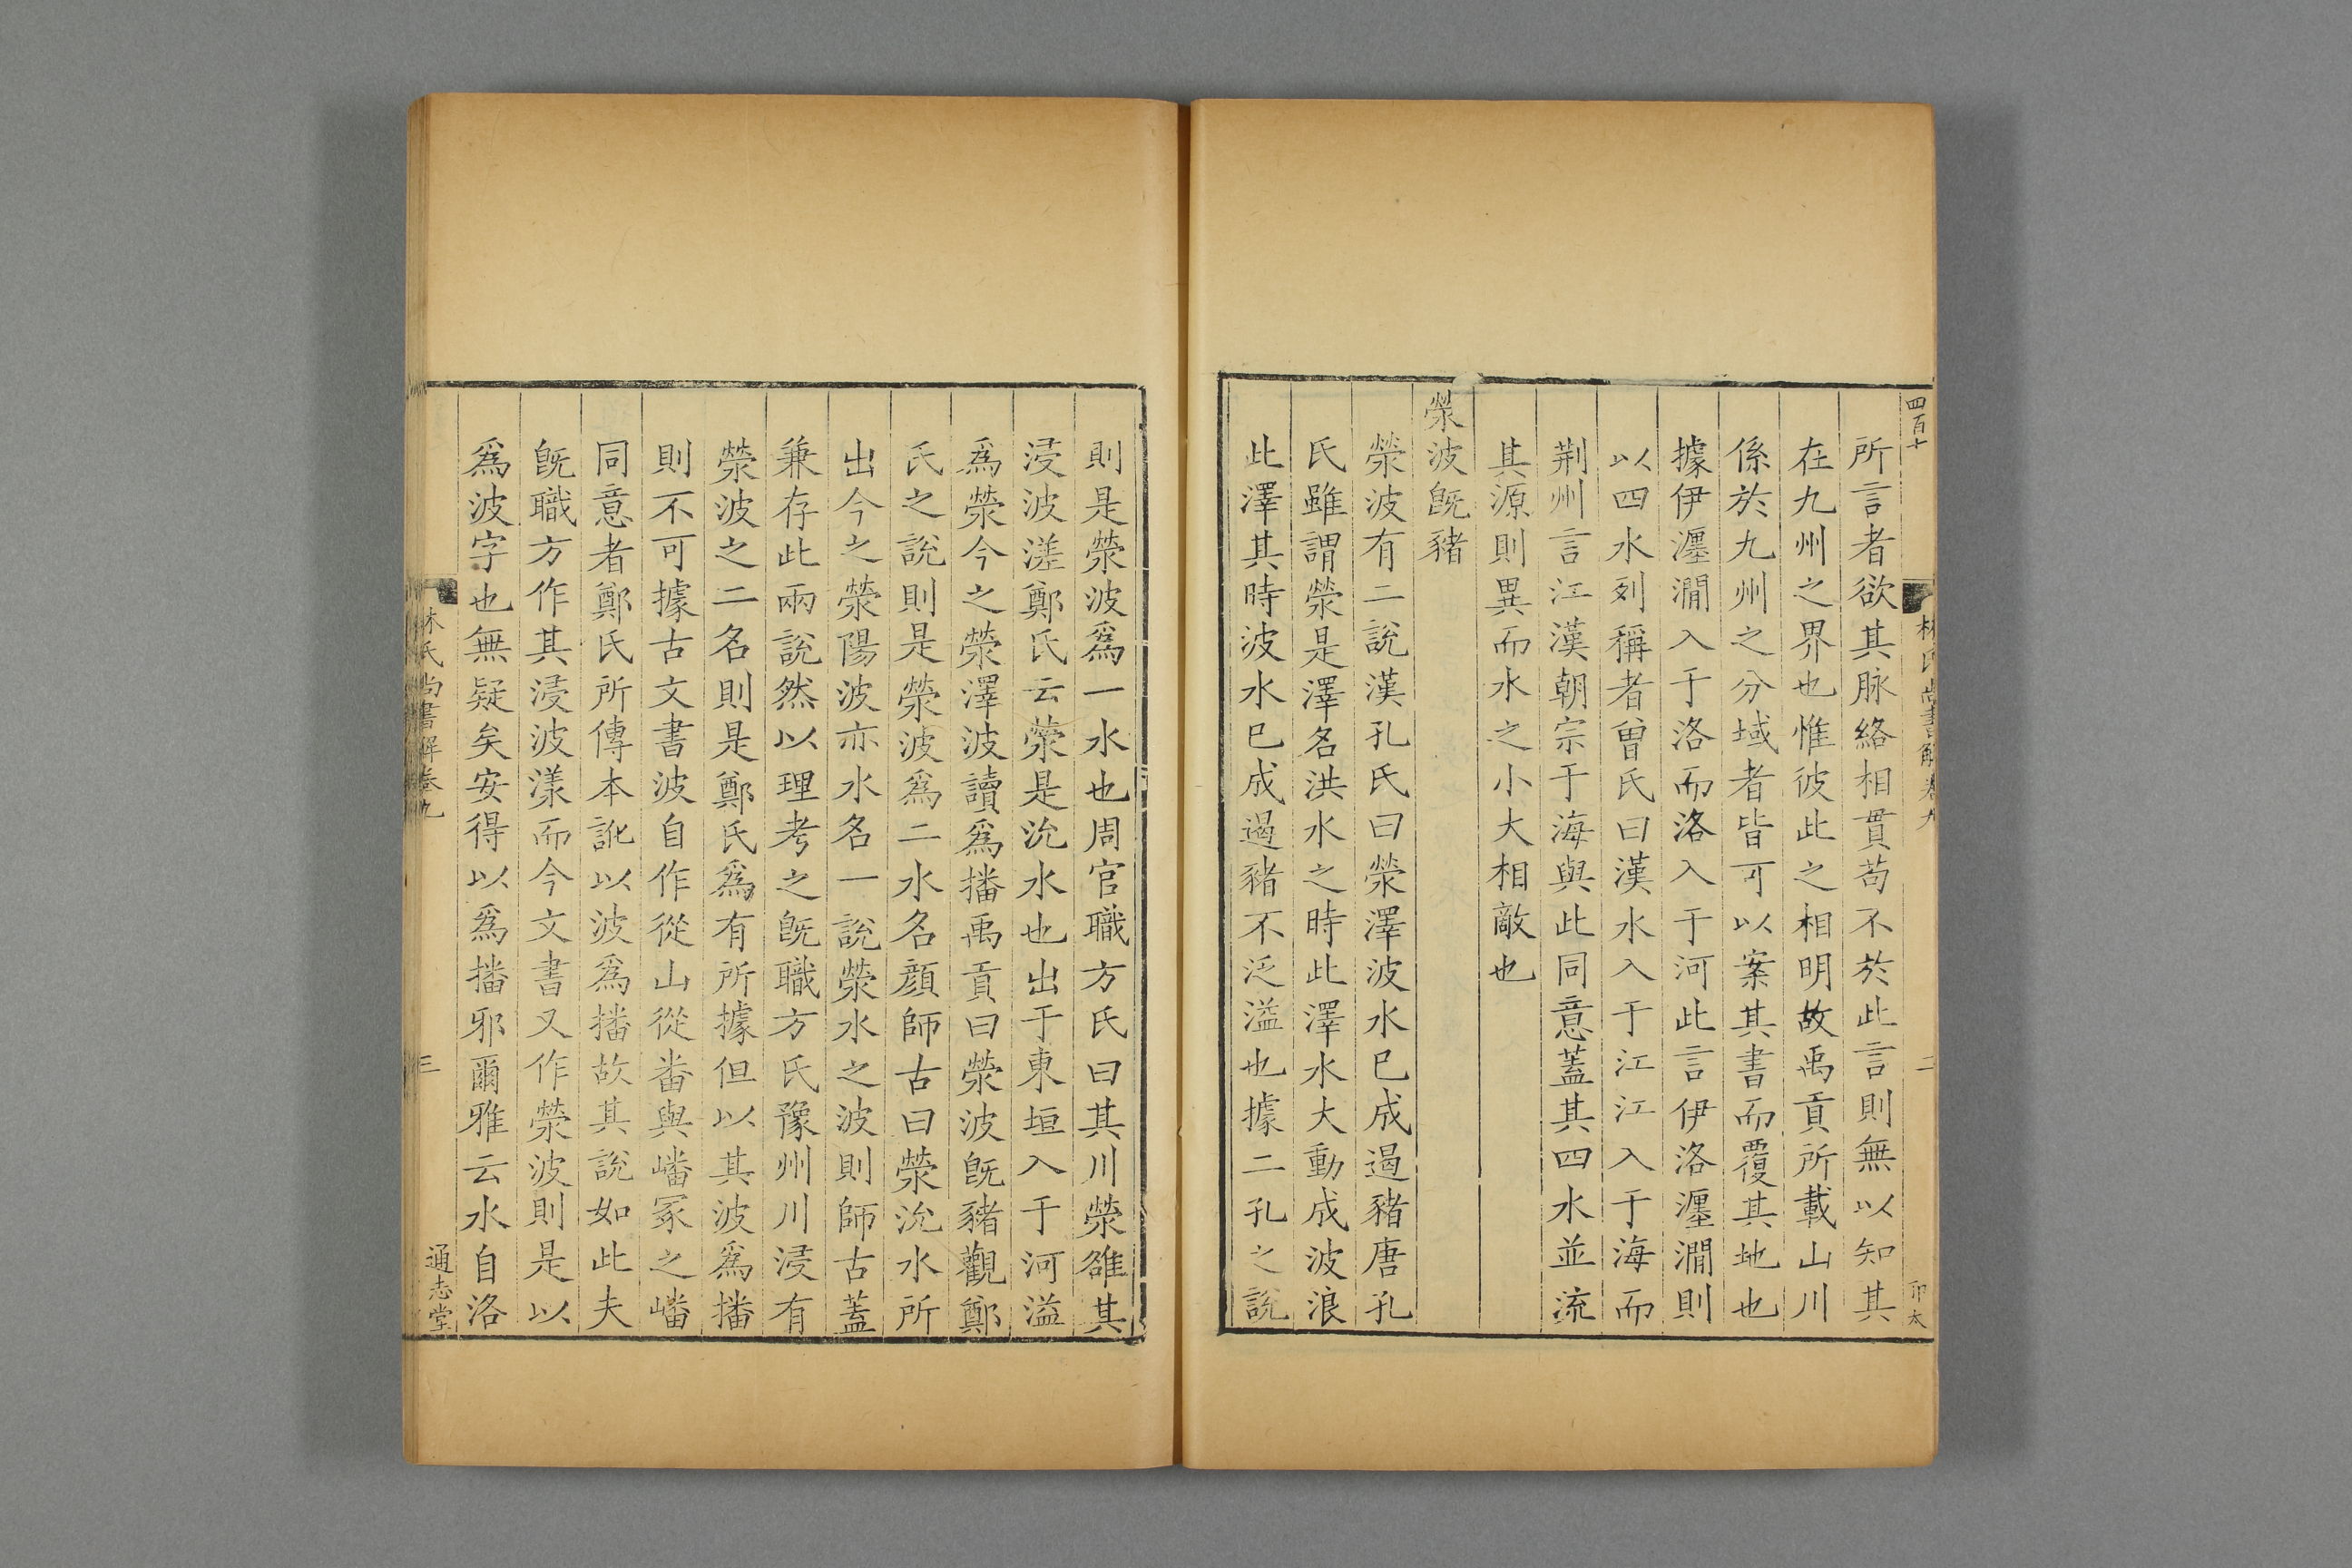 四百十
林氏尚書解卷九
二
印太
所言者欲其脉絡相貫茍不於此言則無以知其
在九州之界也惟彼此之相明故禹貢所載山川
係於九州之分域者皆可以案其書而覆其地也
據伊瀍澗入于洛而洛入于河此言伊洛瀍澗則
以四水列稱者曽氏曰漢水入于江江入于海而
荆州言江漢朝宗于海與此同意蓋其四水並流
其源則異而水之小大相敵也
滎波旣豬
滎波有二說漢孔氏曰滎澤波水巳成遏豬唐孔
氏雖謂滎是澤名洪水之時此澤水大動成波浪
此澤其時波水巳成遏豬不泛溢也據二孔之說
則是滎波爲一水也周官職方氏曰其川滎雒其
浸波溠鄭氏云滎是沇水也出于東垣入于河溢
爲滎今之滎澤波讀爲播禹貢曰滎波旣豬觀鄭
氏之說則是滎波爲二水名顔師古曰滎沇水所
出今之滎陽波亦水名一說滎水之波則師古蓋
兼存此兩說然以理考之旣職方氏豫州川浸有
滎波之二名則是鄭氏爲有所據但以其波爲播
則不可據古文書波自作從山從番與嶓冢之嶓
同意者鄭氏所傳本訛以波爲播故其說如此夫
旣職方作其浸波漾而今文書又作滎波則是以
爲波字也無疑矣安得以爲播邪爾雅云水自洛
林氏尚書解卷九
三
通志堂